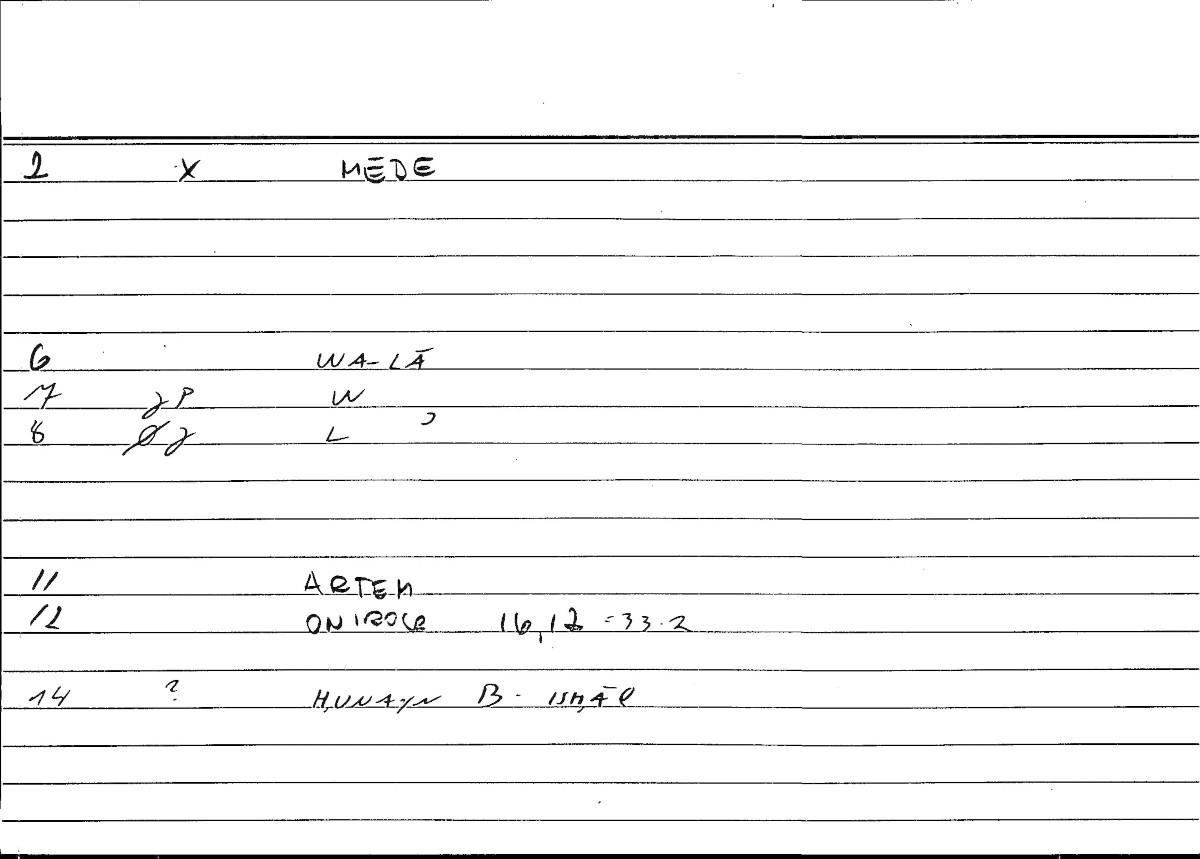 2 X MEDE
6 WA-LĀ
7 γP W
8 γ L ʾ
11 ARTEM
12 ONIROCR 16,12 = 33.2
14 ? ḤUNAYN B. ISḤĀQ